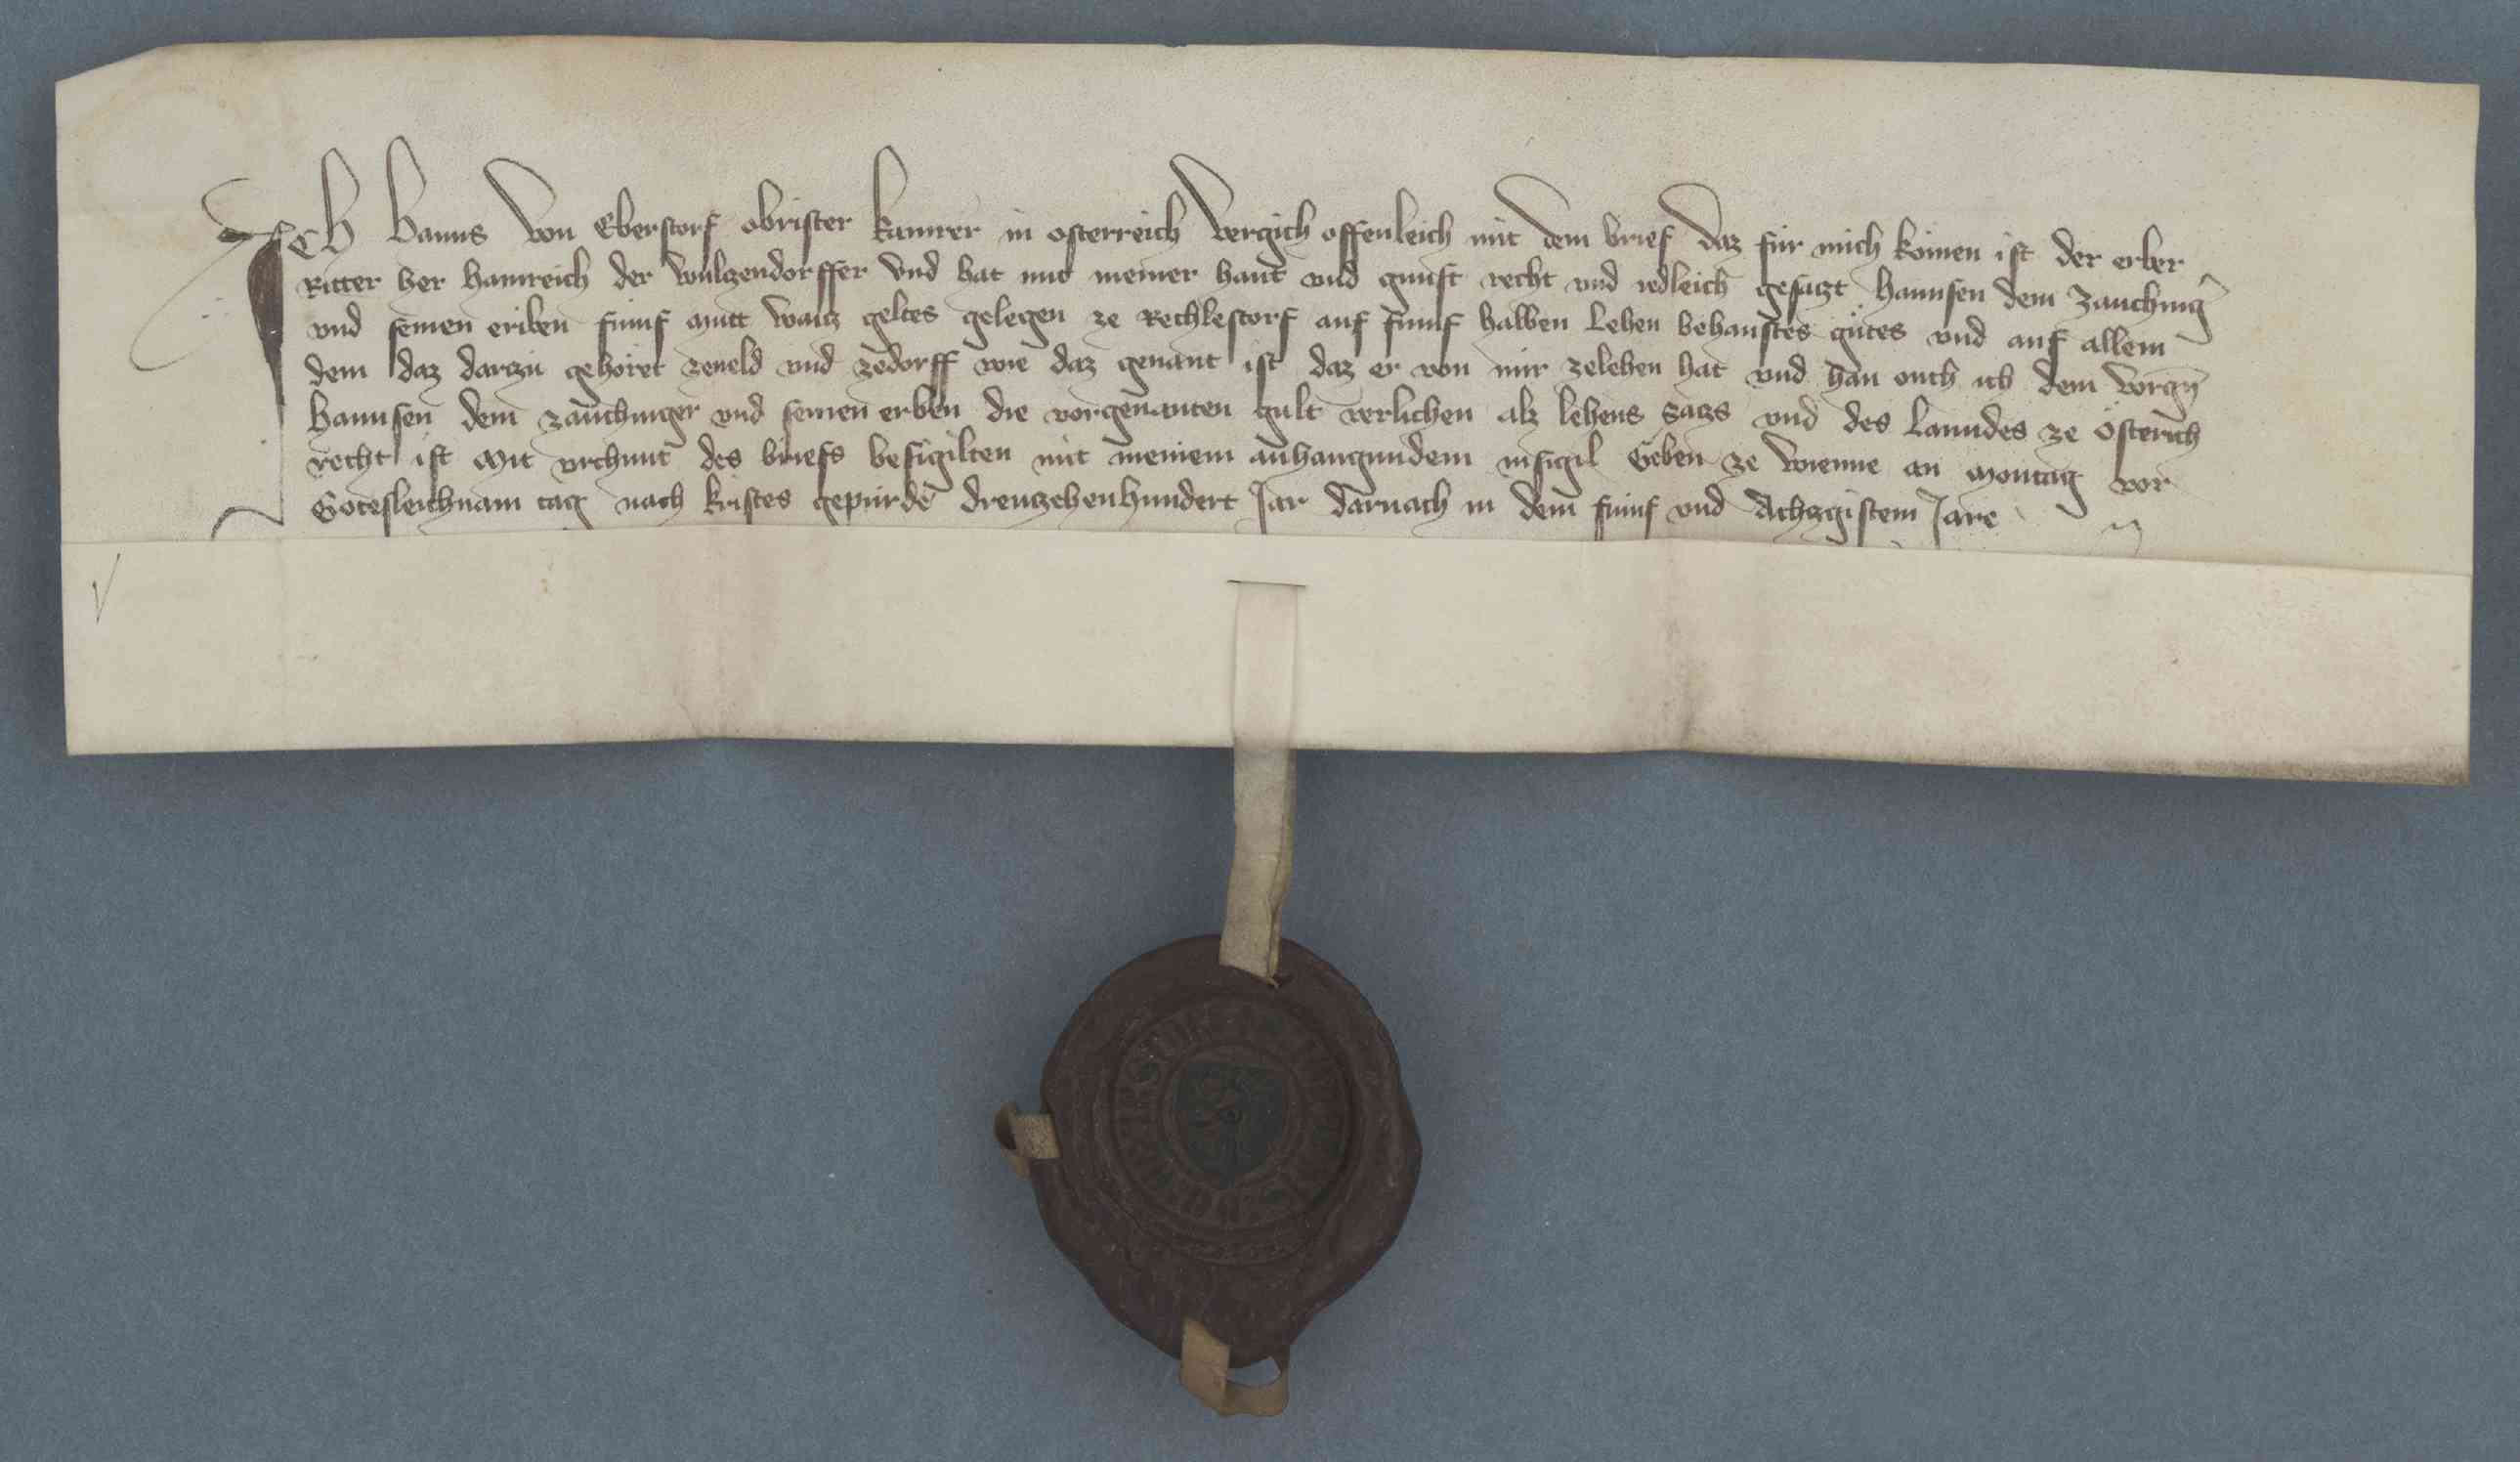 ICH Hanns von Eberstorf obrister kamrer in osterreich vergich offenleich mit dem brief daz für mich komen ist der erber
Ritter her hainreich der wulzendorffer vnd hat mit meiner hant vnd gunst recht vnd redleich gesatzt hannsen dem zauching̅
vnd seinen eriben funf mutt waitz geltes gelegen ze Rechlestorf auf funf halben lehen behaustes gůtes vnd auf allem
dem daz darzu gehoret zeueld vnd zedorff wie daz genant ist daz er von mir zelehen hat vnd han ouch ich dem vorgn̅
hannsen dem zauchinger vnd seinen erben die vorgenanten gult verlichen alz lehens satzs vnd des lanndes ze osterich
recht ist Mit vrchunt des briefs besigilten mit meinem anhangundem insigil Geben ze wienne an Montag vor
Gotesleichnam tag nach kristes gepurde dreutzehenhundert Jar darnach in dem funf vnd Achzgistem Jare